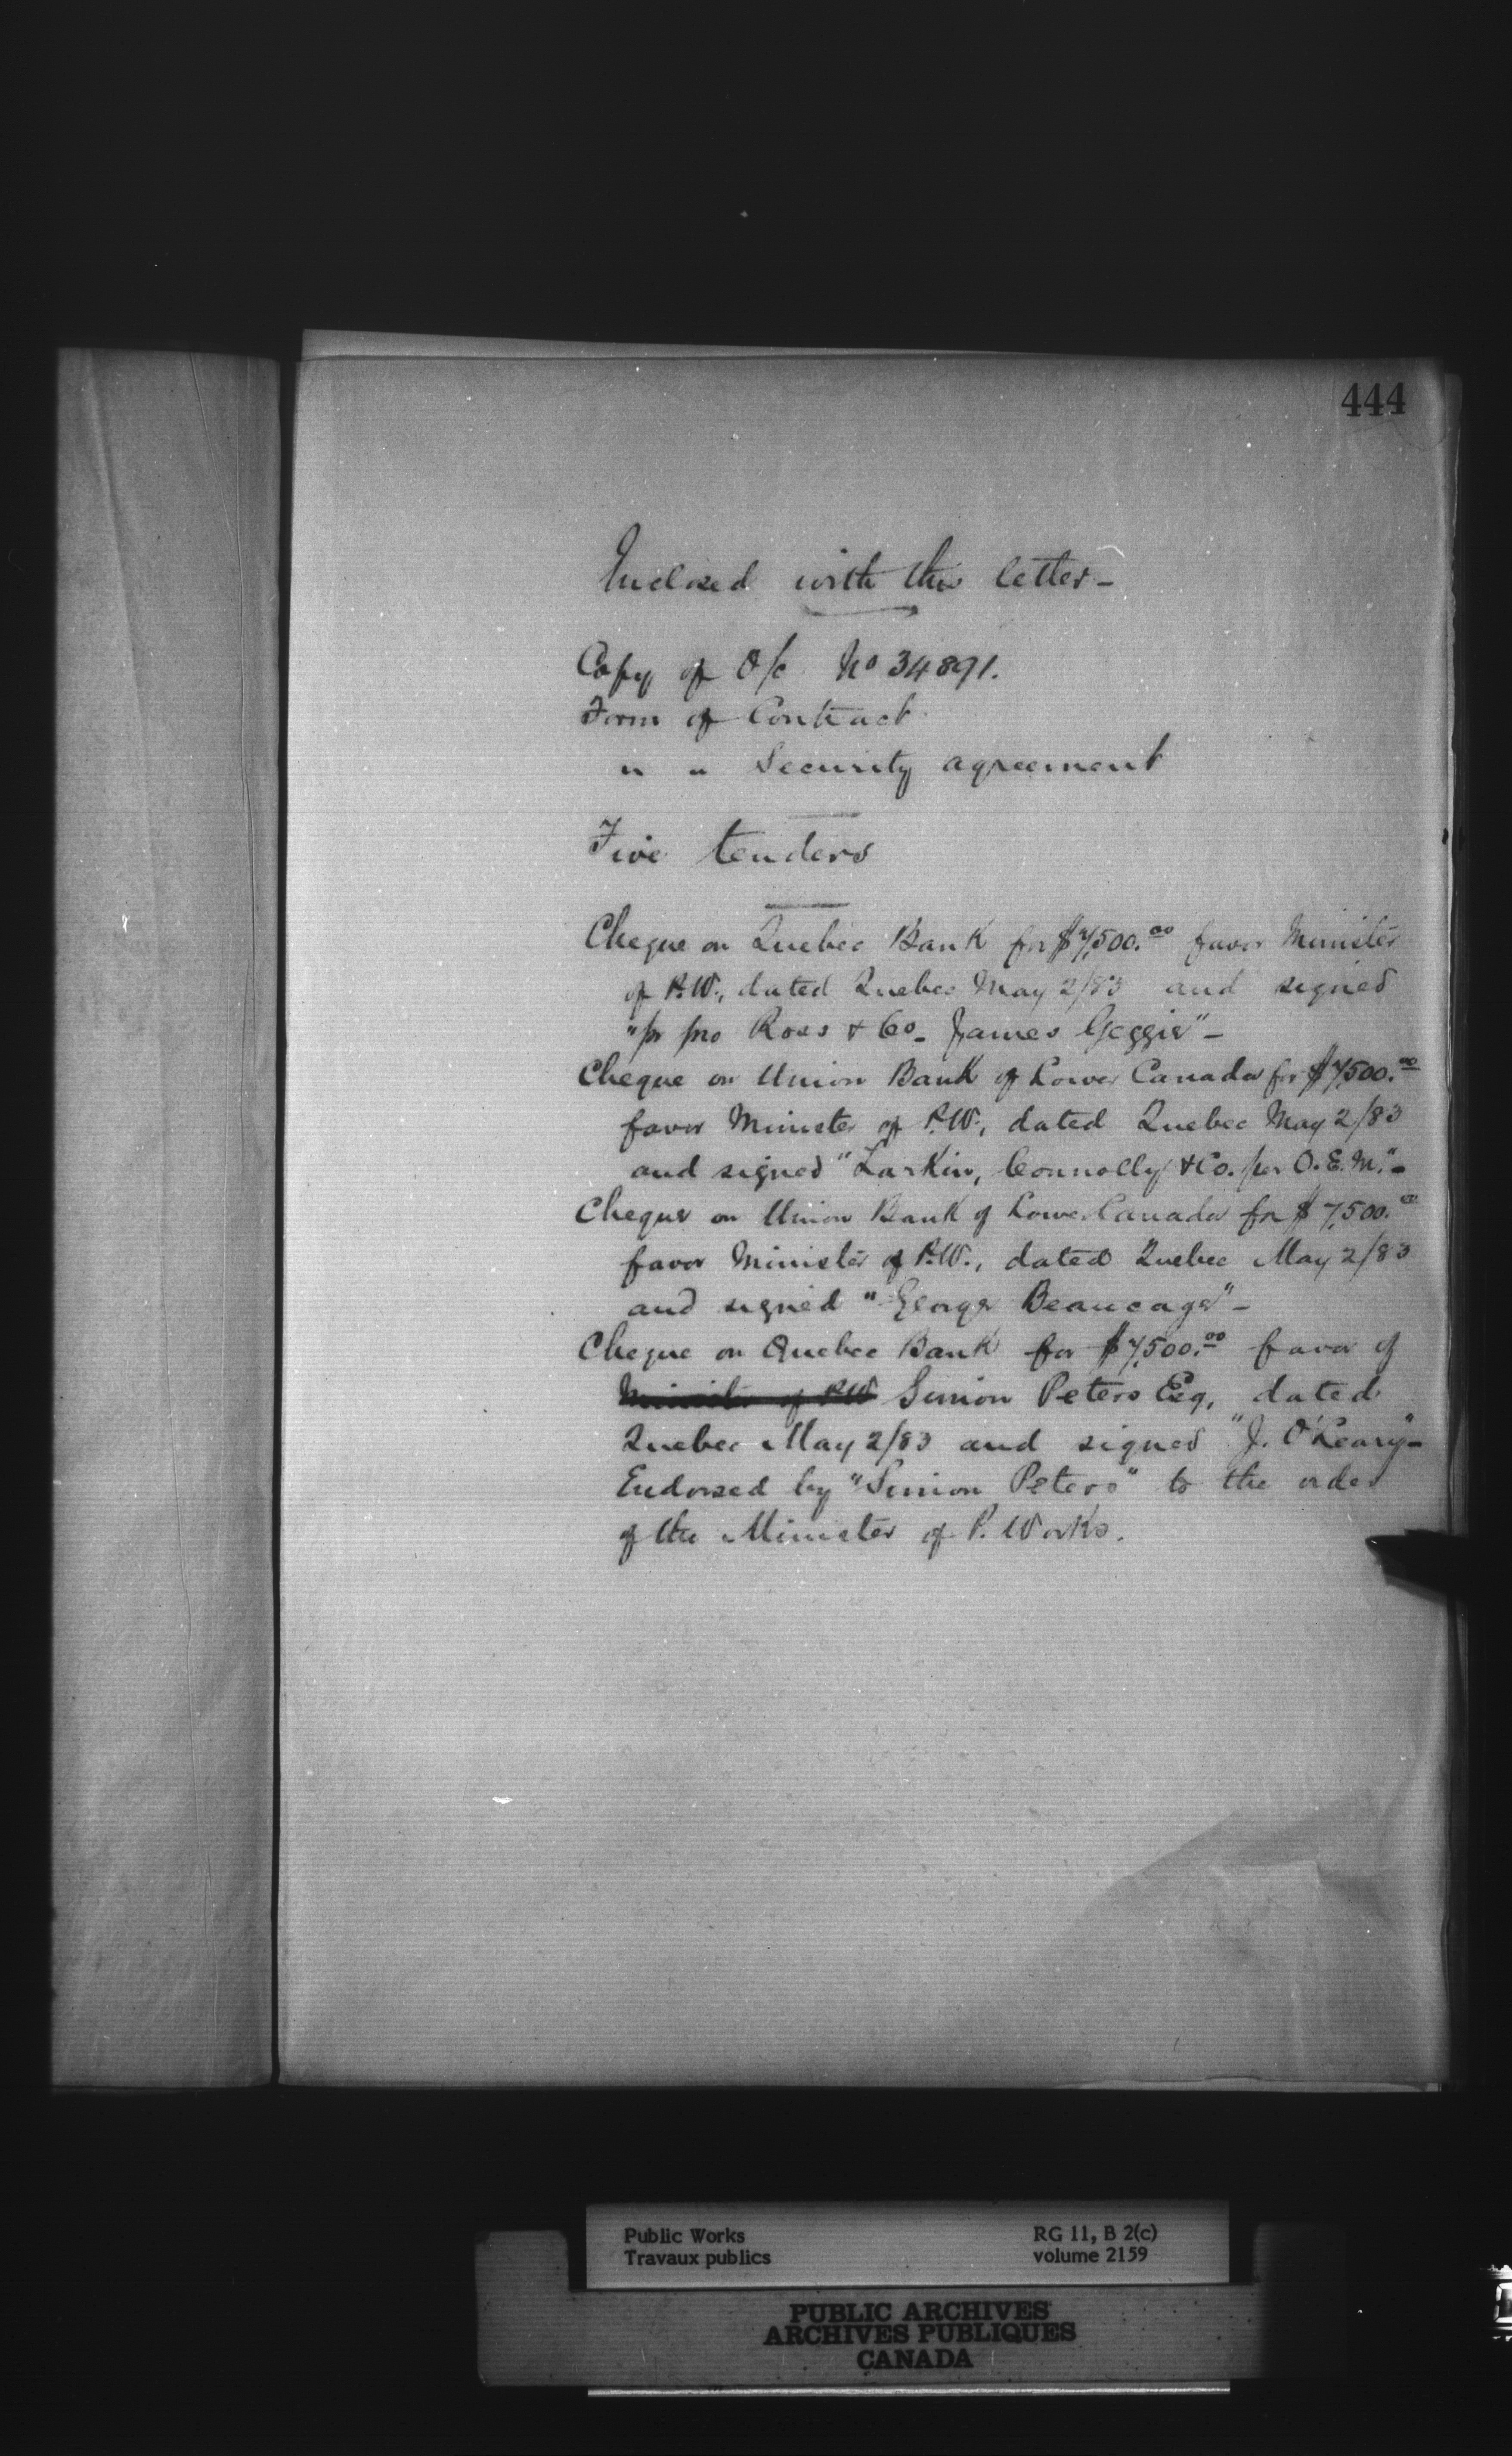 444
Enclosed with this letter -
Copy of O/c No 34891.
Form of Contract
" " Security agreement
Five tenders
Cheque on Quebec Bank for $7,500.00 favor Minister
of P.W., dated Quebec May 2/83 and signed
"pr pro Ross & Co_ James Geggie" -
Cheque on Union Bank of Lower Canada for $7,500.00
favor Minister of P.W., dated Quebec May 2/83
and signed "Larkin, Connolly & Co. per O. E. M." -
Cheque on Union Bank of Lower Canada for $7,500.00
favor Minister of P.W., dated Quebec May 2/83
and signed "George Beaucage" -
Cheque on Quebec Bank for $7,500.00 favor of
Minister of P.W Simon Peters Esq, dated
Quebec May 2/83 and signed "J. O'Leary" -
Endorsed by "Simon Peters" to the order
of the Minister of P. Works.
Public Works RG 11, B 2(c)
Travaux publics volume 2159
PUBLIC ARCHIVES
ARCHIVES PUBLIQUES
CANADA